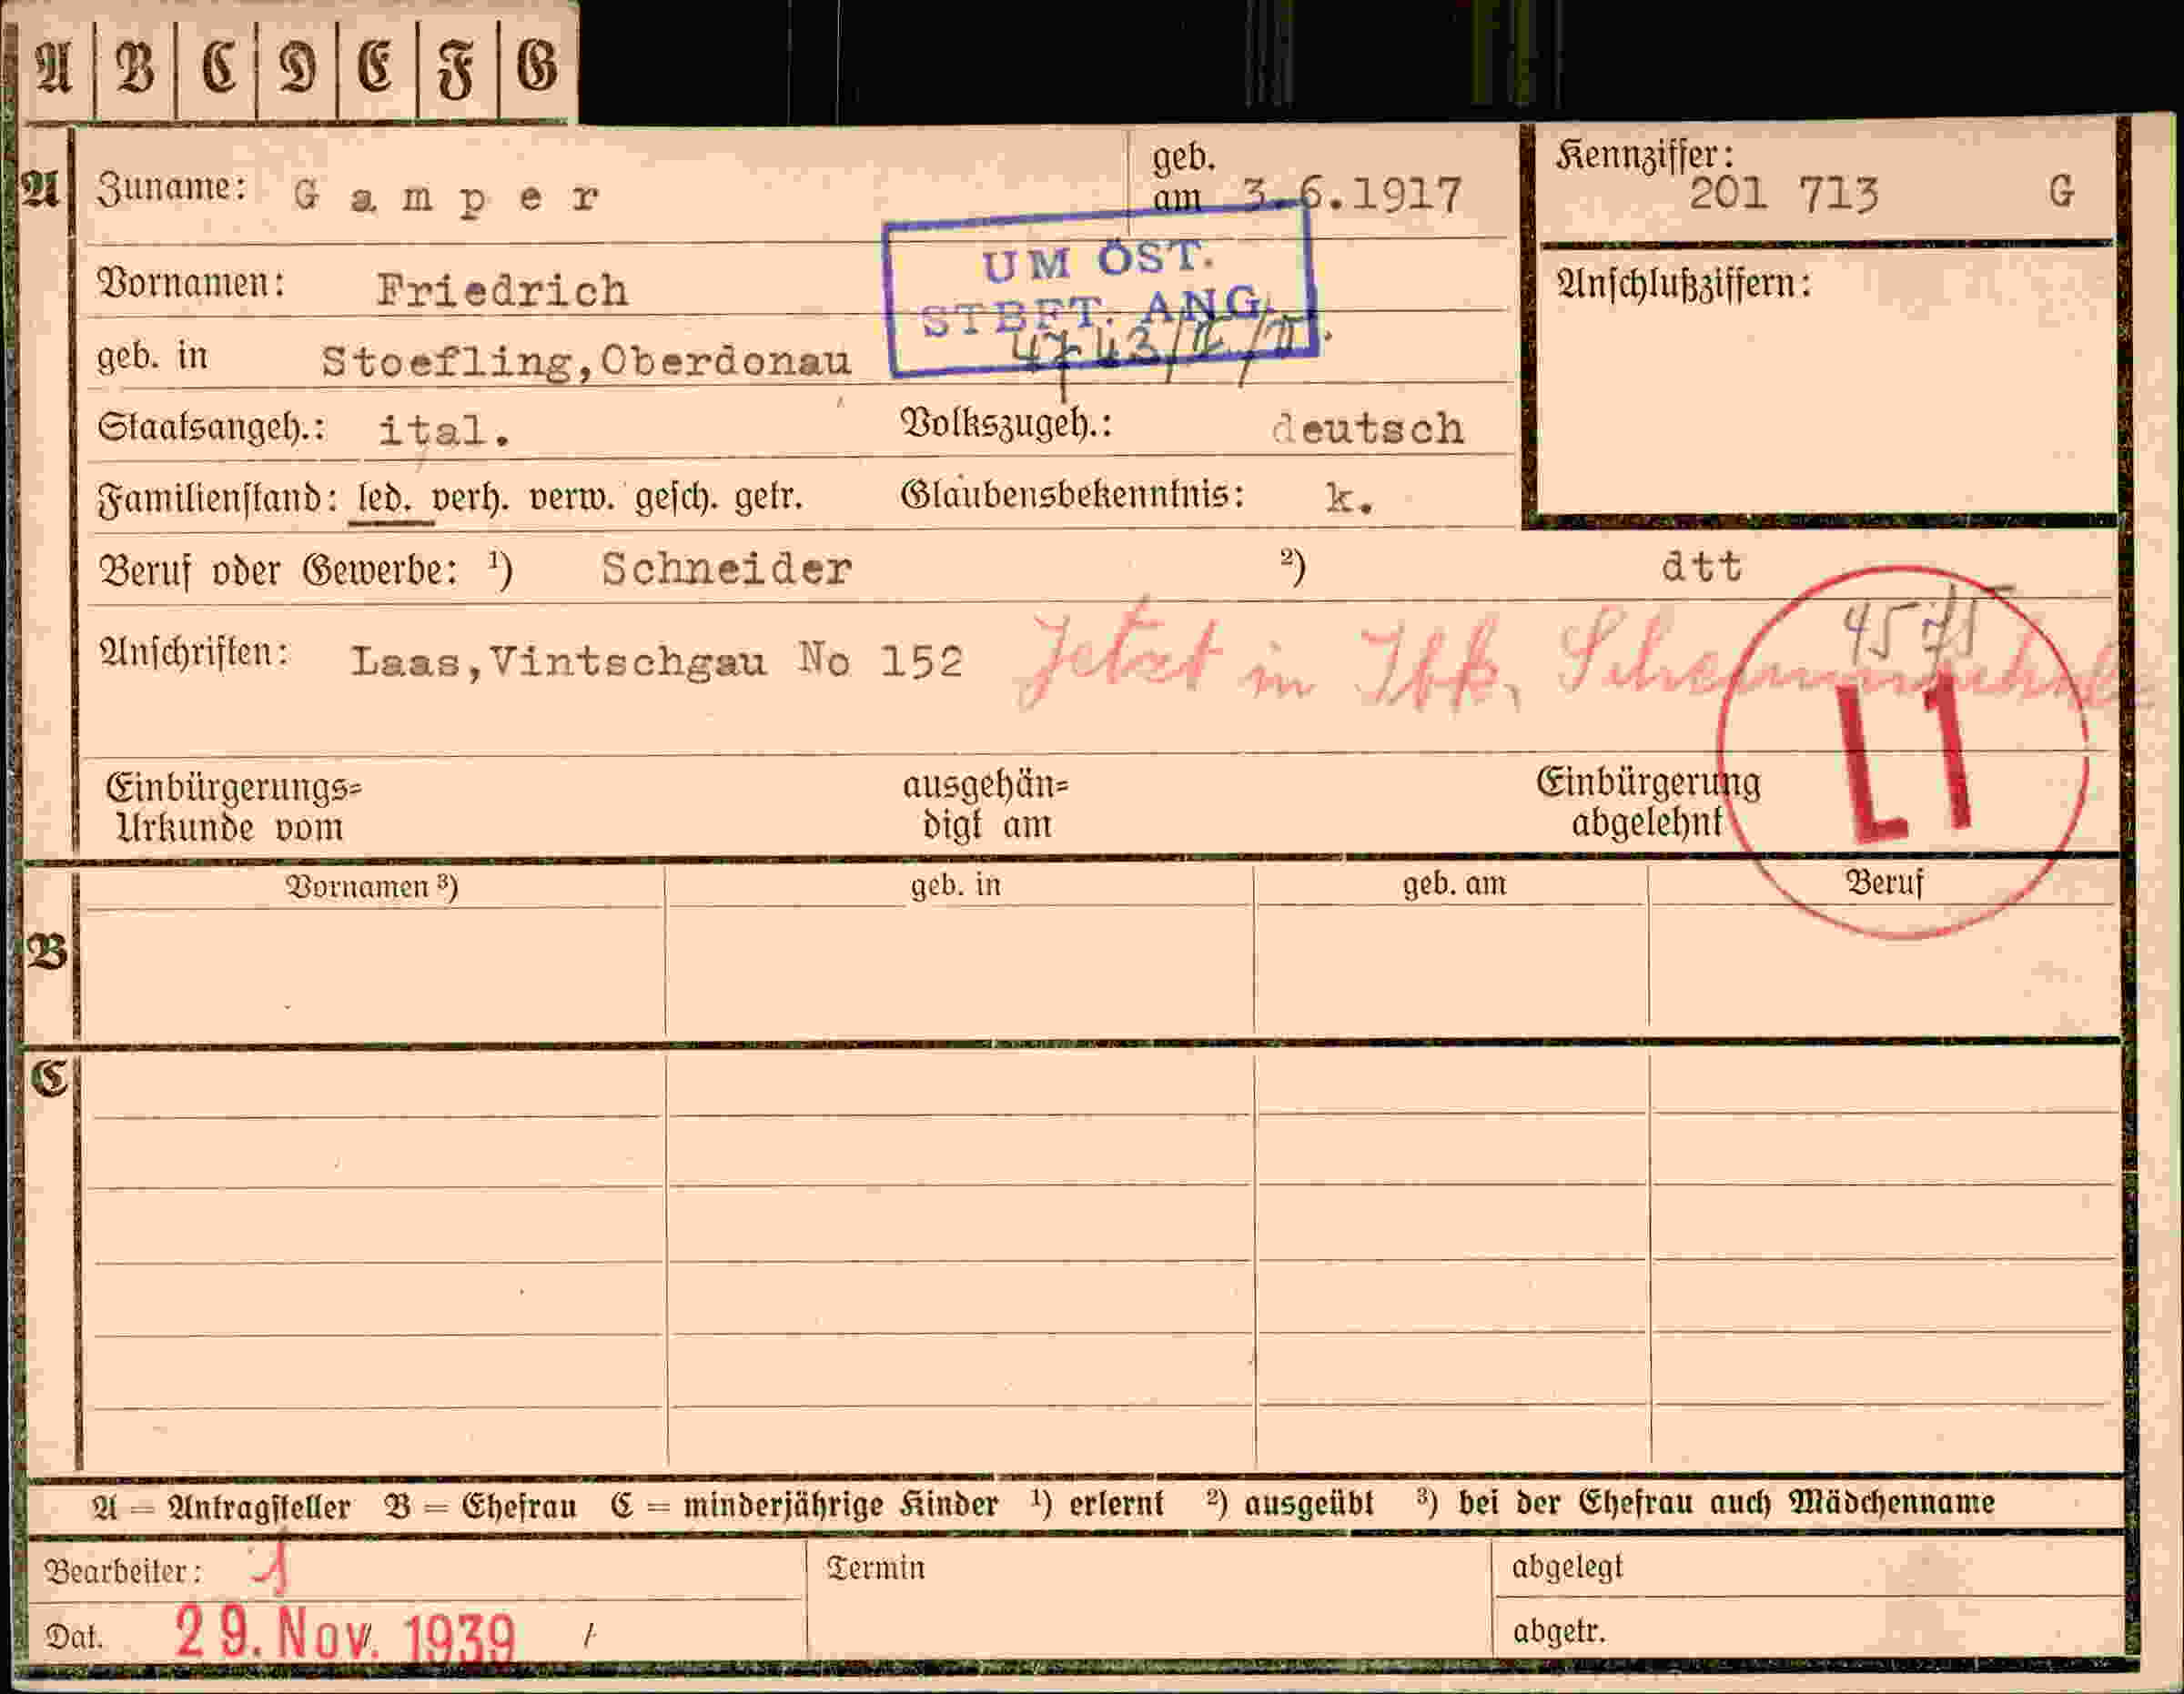 A B C D E F G
A Zuname: Gamper geb. am 3.6.1917 Kennziffer: 201 713 G
UM ÖST.
Vornamen: Friedrich Anschlußziffern:
STBFT. ANG.
geb. in Stoefling,Oberdonau 4743/II/II.
Staatsangeh.: ital. Volkszugeh.: deutsch
Familienstand: led. verh. verw. gesch. getr. Glaubensbekenntnis: k.
Beruf oder Gewerbe: ¹) Schneider ²) dtt
Anschriften: Laas,Vintschgau No 152 Jetzt in Ibk,
L1
Einbürgerungs= ausgehän= Einbürgerung
Urkunde vom digt am abgelehnt
Vornamen ³) geb. in geb. am Beruf
B
C
A = Antragsteller B = Ehefrau C = minderjährige Kinder ¹) erlernt ²) ausgeübt ³) bei der Ehefrau auch Mädchenname
Bearbeiter: 1 Termin abgelegt
Dat. 29. Nov. 1939 abgetr.